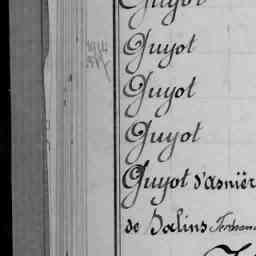 Guyot
Guyot
Guyot
Guyot
Guyot d'Asnièr
de Salins Fernan